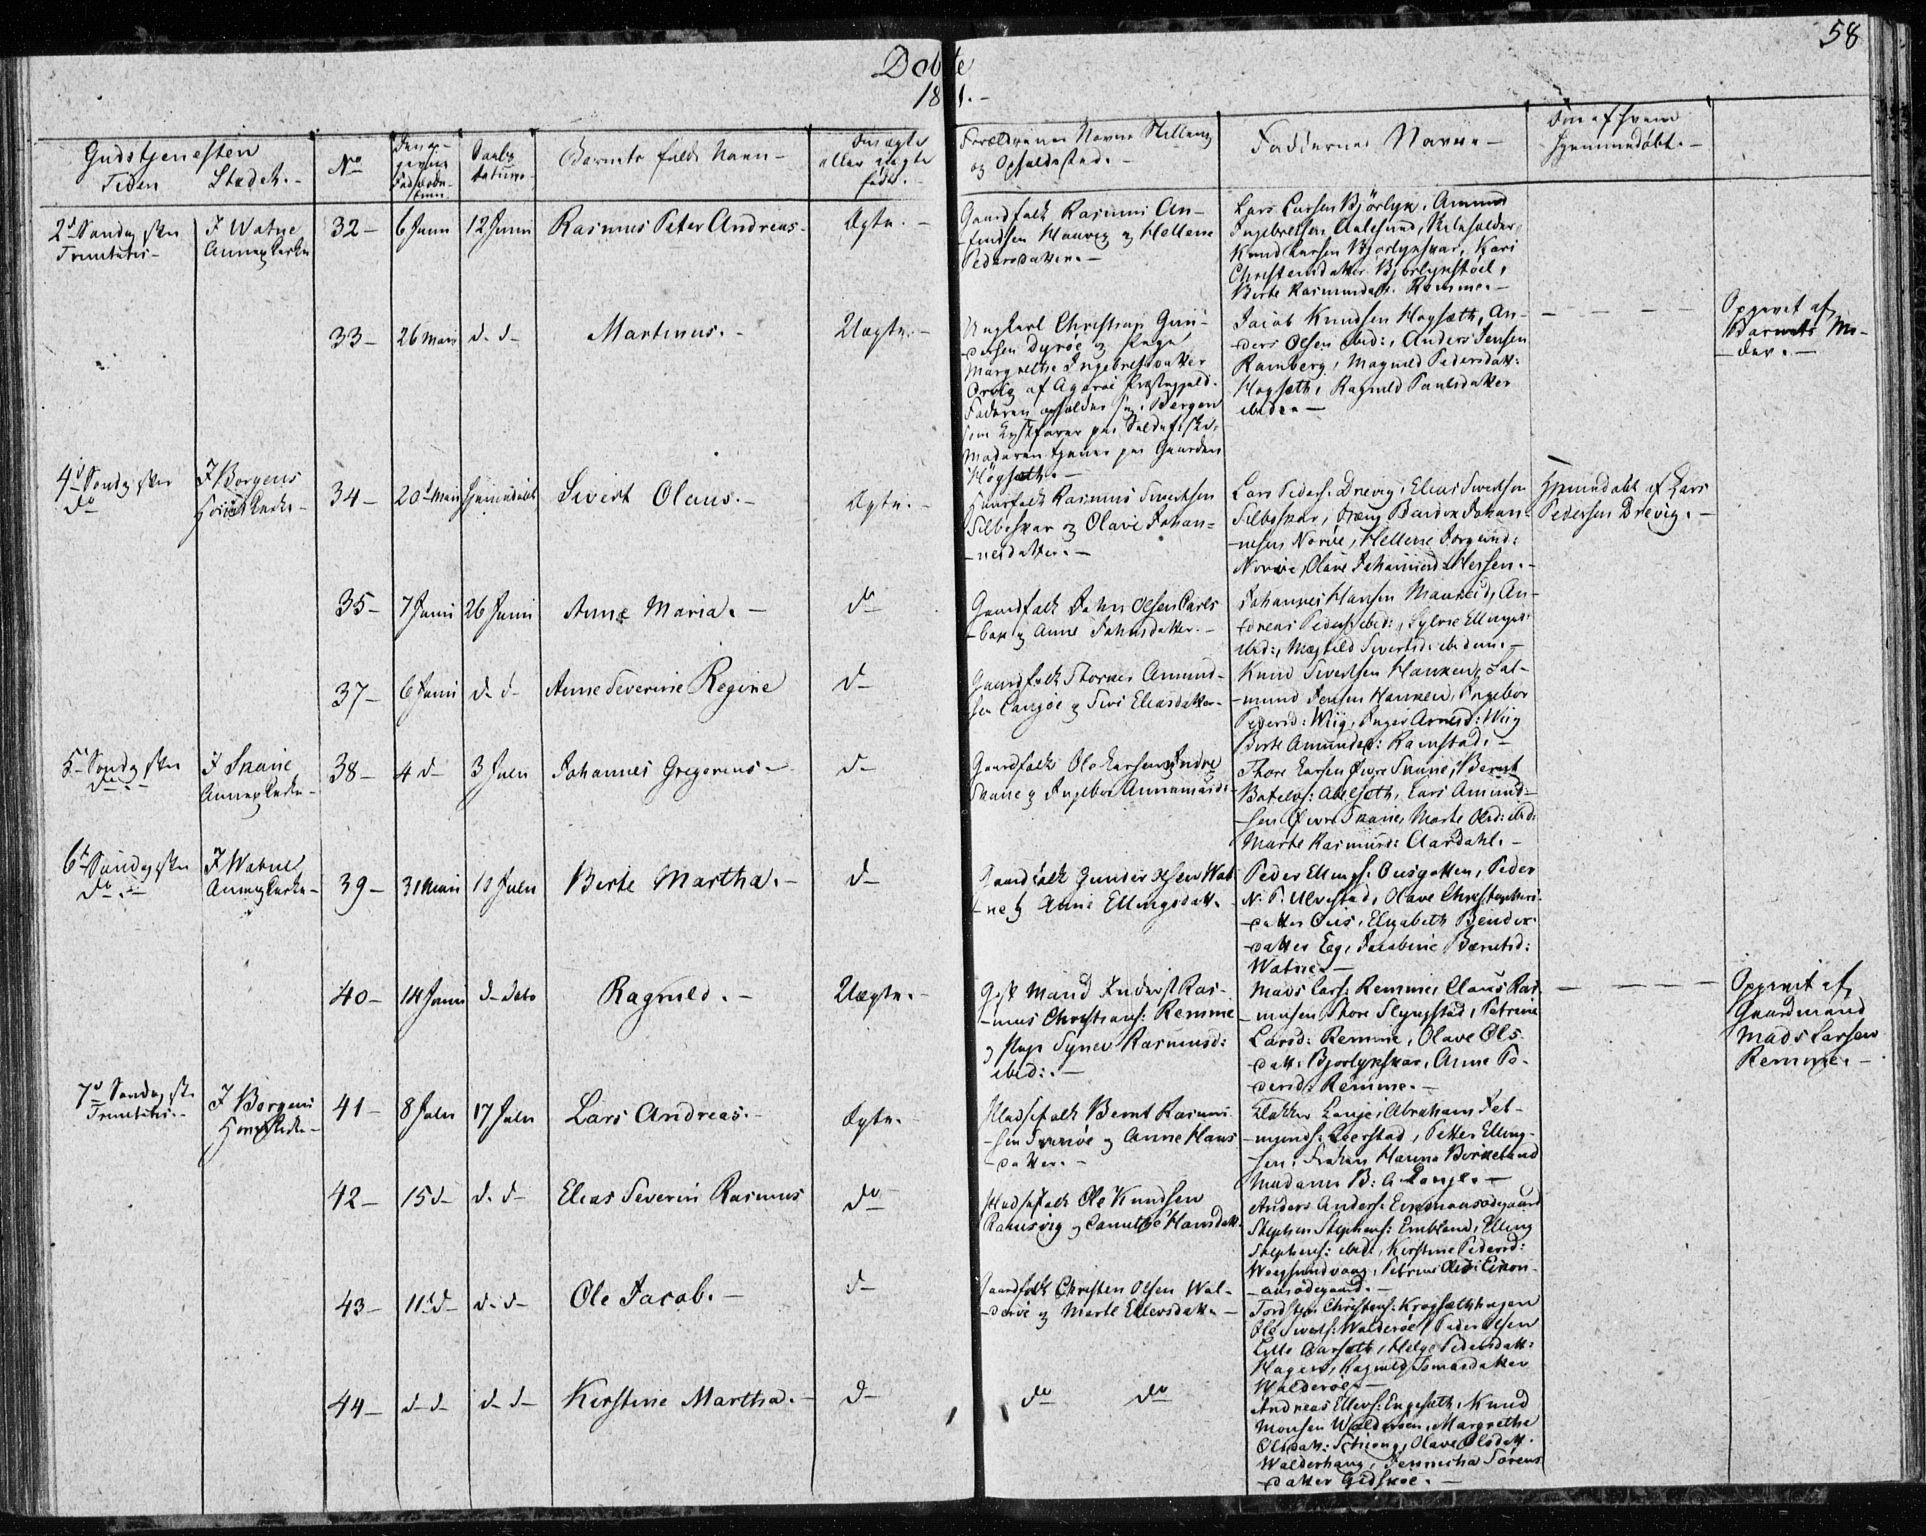 58
Døbte
18 1.-
Gudstjenesten
Tiden Stedet.-
No
Den op-
givne
Daabs
datum.
Barnets fulde Navn-
eller uægte
født.
Forældrenes Navne Stilling
og Opholdssted.-
Faddernes Navne-
hjemmedøbt.-
2d Søndag efter
Trinitatis-
I Watne
Annexkirke
32-
6 Juni
12 Juni
Rasmus Peter Andreas-
Ægte.-
Gaardfolk Rasmus An-
-findsen Haavig og Hellene
Pedersdatter.-
Lars Larsen Bjørlyk, Amund
Ingebretsen Aalesund,
Knud Larsen Bjørlykskar, Kari
Christensdatter Bjørlykstøel,
Birte Rasmusdatt. Remme.-
33-
26 Mai
d- d-
Martinus.-
Uægte.-
Ungkarl Christian
-dersen Dyrøe og Pige
Margrethe Ingebretsdatter
af Agerøe Præstegjeld.
Faderen opholder sig i Bergen
Moderen tjener paa Gaarden
Høgsæth.-
Jacob Knudsen Høgsæth, An-
-ders Olsen ibid:, Anders Jensen
Ramberg, Magnild Pedersdatt:
Høgsæth, Ragnild Paulsdatter
ibid.-
Opgivet af
Barnets Mo-
-der.-
4d Søndag efter
do
I Borgens
Hovedkirke-
34-
20d Mai
Hjemmedøbt
Sivert Olaus.-
Ægte.-
Huusfolk Rasmus Sivertsen
Silbeskar og Olave Johan-
-nesdatter.-
Lars Peders: Drevig, Elias Sivertsen
Silbeskar, Dreng Bendix Johan-
-nesen Norve, Hellene Jørgensd:
Norve, Olave Johannesd: Hessen.-
Hjemmedøbt af Lars
Pedersen Drevig.-
35-
7 Juni
26 Juni
Anne Maria.-
do
Gaardfolk John Olsen Carls-
-bak og Anne Johnsdatter.-
Johannes Hansen Mauseid, An-
-dreas Peders: ibid:, Sylvie Ellingsd:
ibid:, Magnild Sivertsd: ibidem.-
37-
6 Juni
d- d-
Anne Severine Regine
d-
Gaardfolk Thomas Amund-
-sen Langøe og Siri Eliasdatter-
Knud Sivertsen Hanken, Sal-
-mund Jensen Hanken, Ingebor
Pedersd: Wiig, Inger Arnesd: Wiig
Birte Amundsd: Ramstad.-
5- Søndag efter
do-
I Skane
Annexkirke-
38-
4 d-
3 Julii
Johannes Gregorius-
d-
Gaardfolk Ole Larsen Indre
Skaue og Ingebor Annamusd:-
Thore Larsen Øvre Skaue, Bernt
Botolvs: Abelsæth, Lars Amund-
-sen Øvre Skaue, Marte Olsd: ibid:
Marte Rasmusd: Aardahl.-
6d Søndag efter
do.-
I Watne
Annexkirke-
39-
31 Mai
10 Julii
Birte Martha.-
d-
Gaardfolk Gunder Olsen Wat-
-ne og Anne Ellingsdatt.
Peder Ellings: Ousgotten, Peder
N. P. Ulvestad, Olave Christophers-
-datter Ous, Elisabeth Bendix-
-datter Eeg, Jacobine Berntsd:
Watne.-
40-
14 Juni
d- dato
Ragnild.-
Uægte.-
Gift Mand Inderst Ras-
-mus Christians: Remme
og Pige Synev Rasmusd:
ibid:.-
Mads Lars: Remme, Claus Ras-
-musen Thore Slyngstad, Petrine
Larsd: Remme, Olave Ols-
datt: Bjørlykskar, Anne Pe-
-dersd: Remme.-
Opgivet af
Gaardmand
Mads Larsen
Remme.-
7d Søndag eft
Trinitatis.-
I Borgens
Hovedkirke-
41-
8 Julii
17 Julii
Lars Andreas.-
Ægte.-
Huusfolk Bernt Rasmus-
-sen og Anne Hans-
-datter.-
Klokker Lange, Abraham Sal-
-munds: Øverstad, Petter Elling-
-sen, Frøken Hanna Birkeland
Madame B. A. Lange.-
42-
15 d-
d- d-
Elias Severin Rasmus
do-
Huusfolk Ole Knudsen
Ramsvig og Hansdatt.
Anders Anders: Eikonausødegaard
Stephen Stephens: Emblem, Elling
Stephens: ibid:, Kirstine Pedersd:
Wegsundvaag, Petrine Olsd: Eikon-
-ausødegaard.-
43-
11 d-
d- d-
Ole Jacob.-
d-
Gaardfolk Christen Olsen Wal-
-derøe og Marte Ellevsdatt.-
Tordsten Christens: Krogsæthhagen
Ole Siverts: Walderøe, Peder Olsen
Lille Aarsæth, Helge Pedersdatt:
Hagen, Ragnild Tomasdatter
Walderøe.-
44-
d- d-
d- d-
Kirstine Martha.-
d-
do do
Andreas Ellevs: Engesæth, Knud
Monsen Walderøen, Margrethe
Olsdatt: Schiong, Olave Olsdatt.
Walderhaug, Jennicha Sørens-
-datter Gidskøe.-